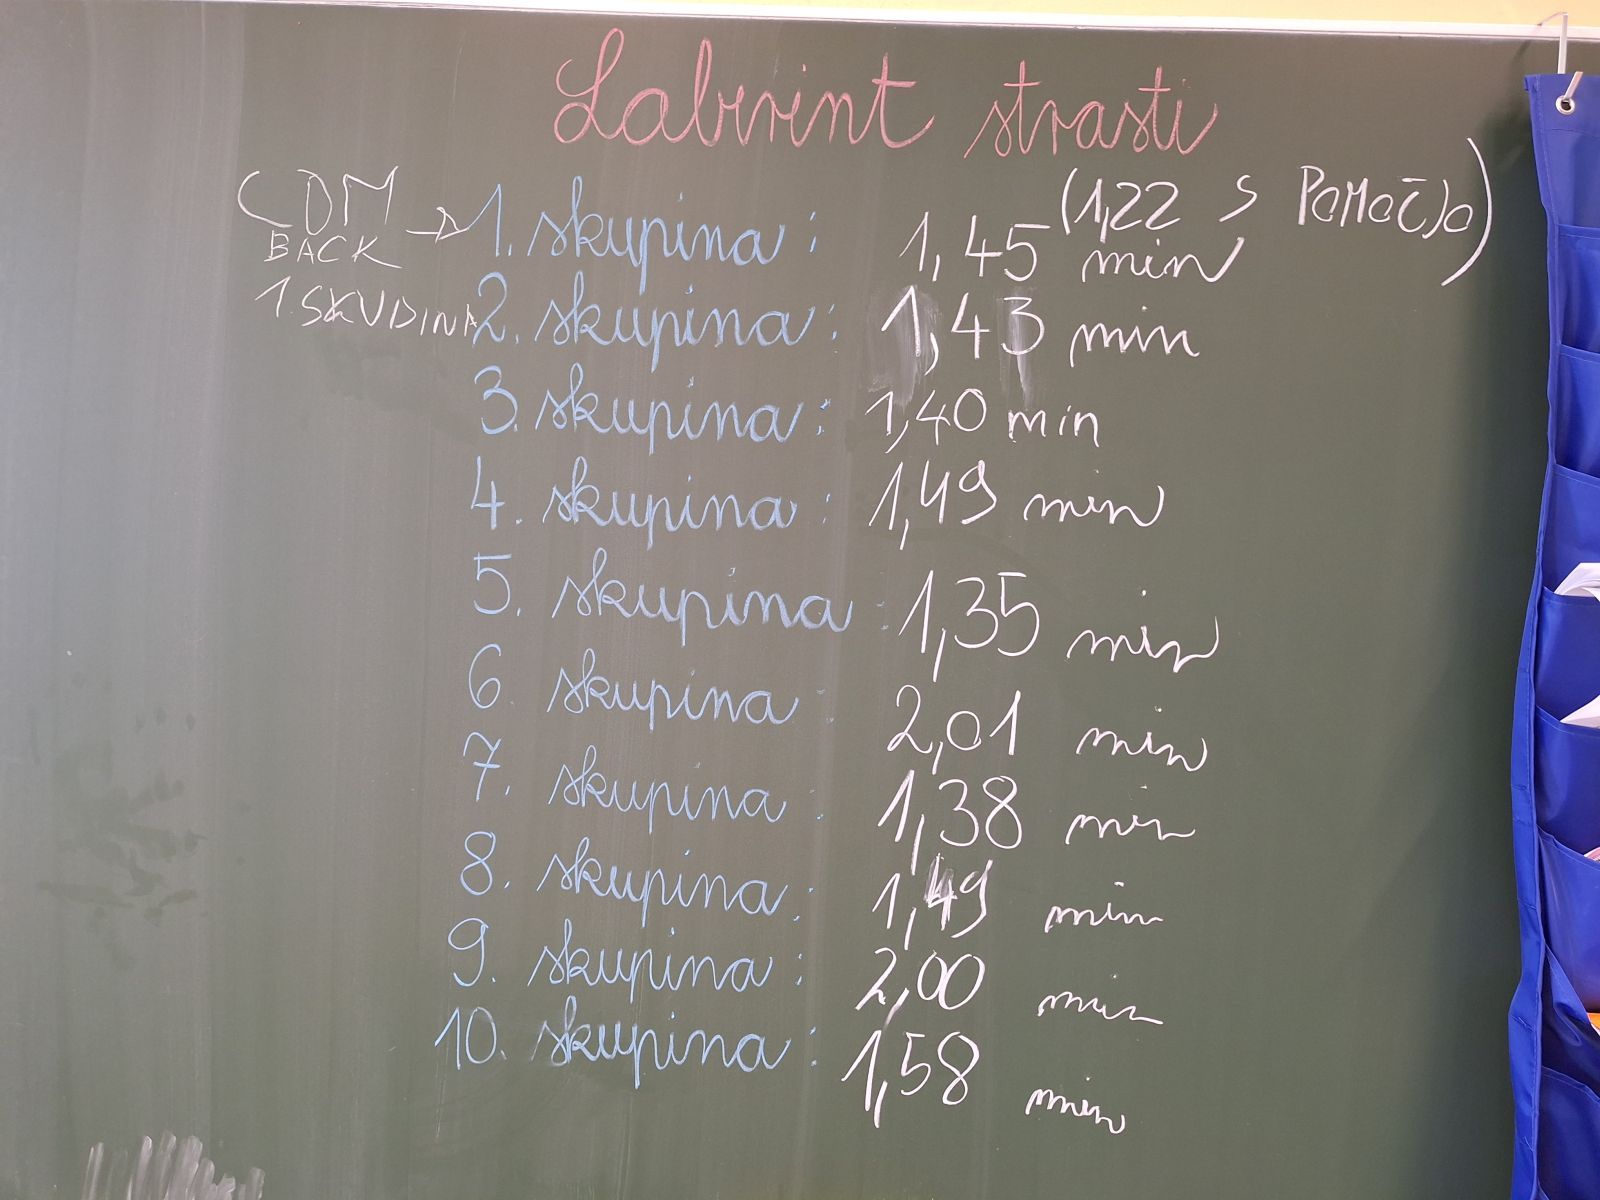 Labirint strasti
COM BACK 1. SKUPINA
1. skupina: 1,45 min (1,22 S POMOČJO)
2. skupina: 1,43 min
3. skupina: 1,40 min
4. skupina: 1,49 min
5. skupina: 1,35 min
6. skupina: 2,01 min
7. skupina: 1,38 min
8. skupina: 1,49 min
9. skupina: 2,00 min
10. skupina: 1,58 min